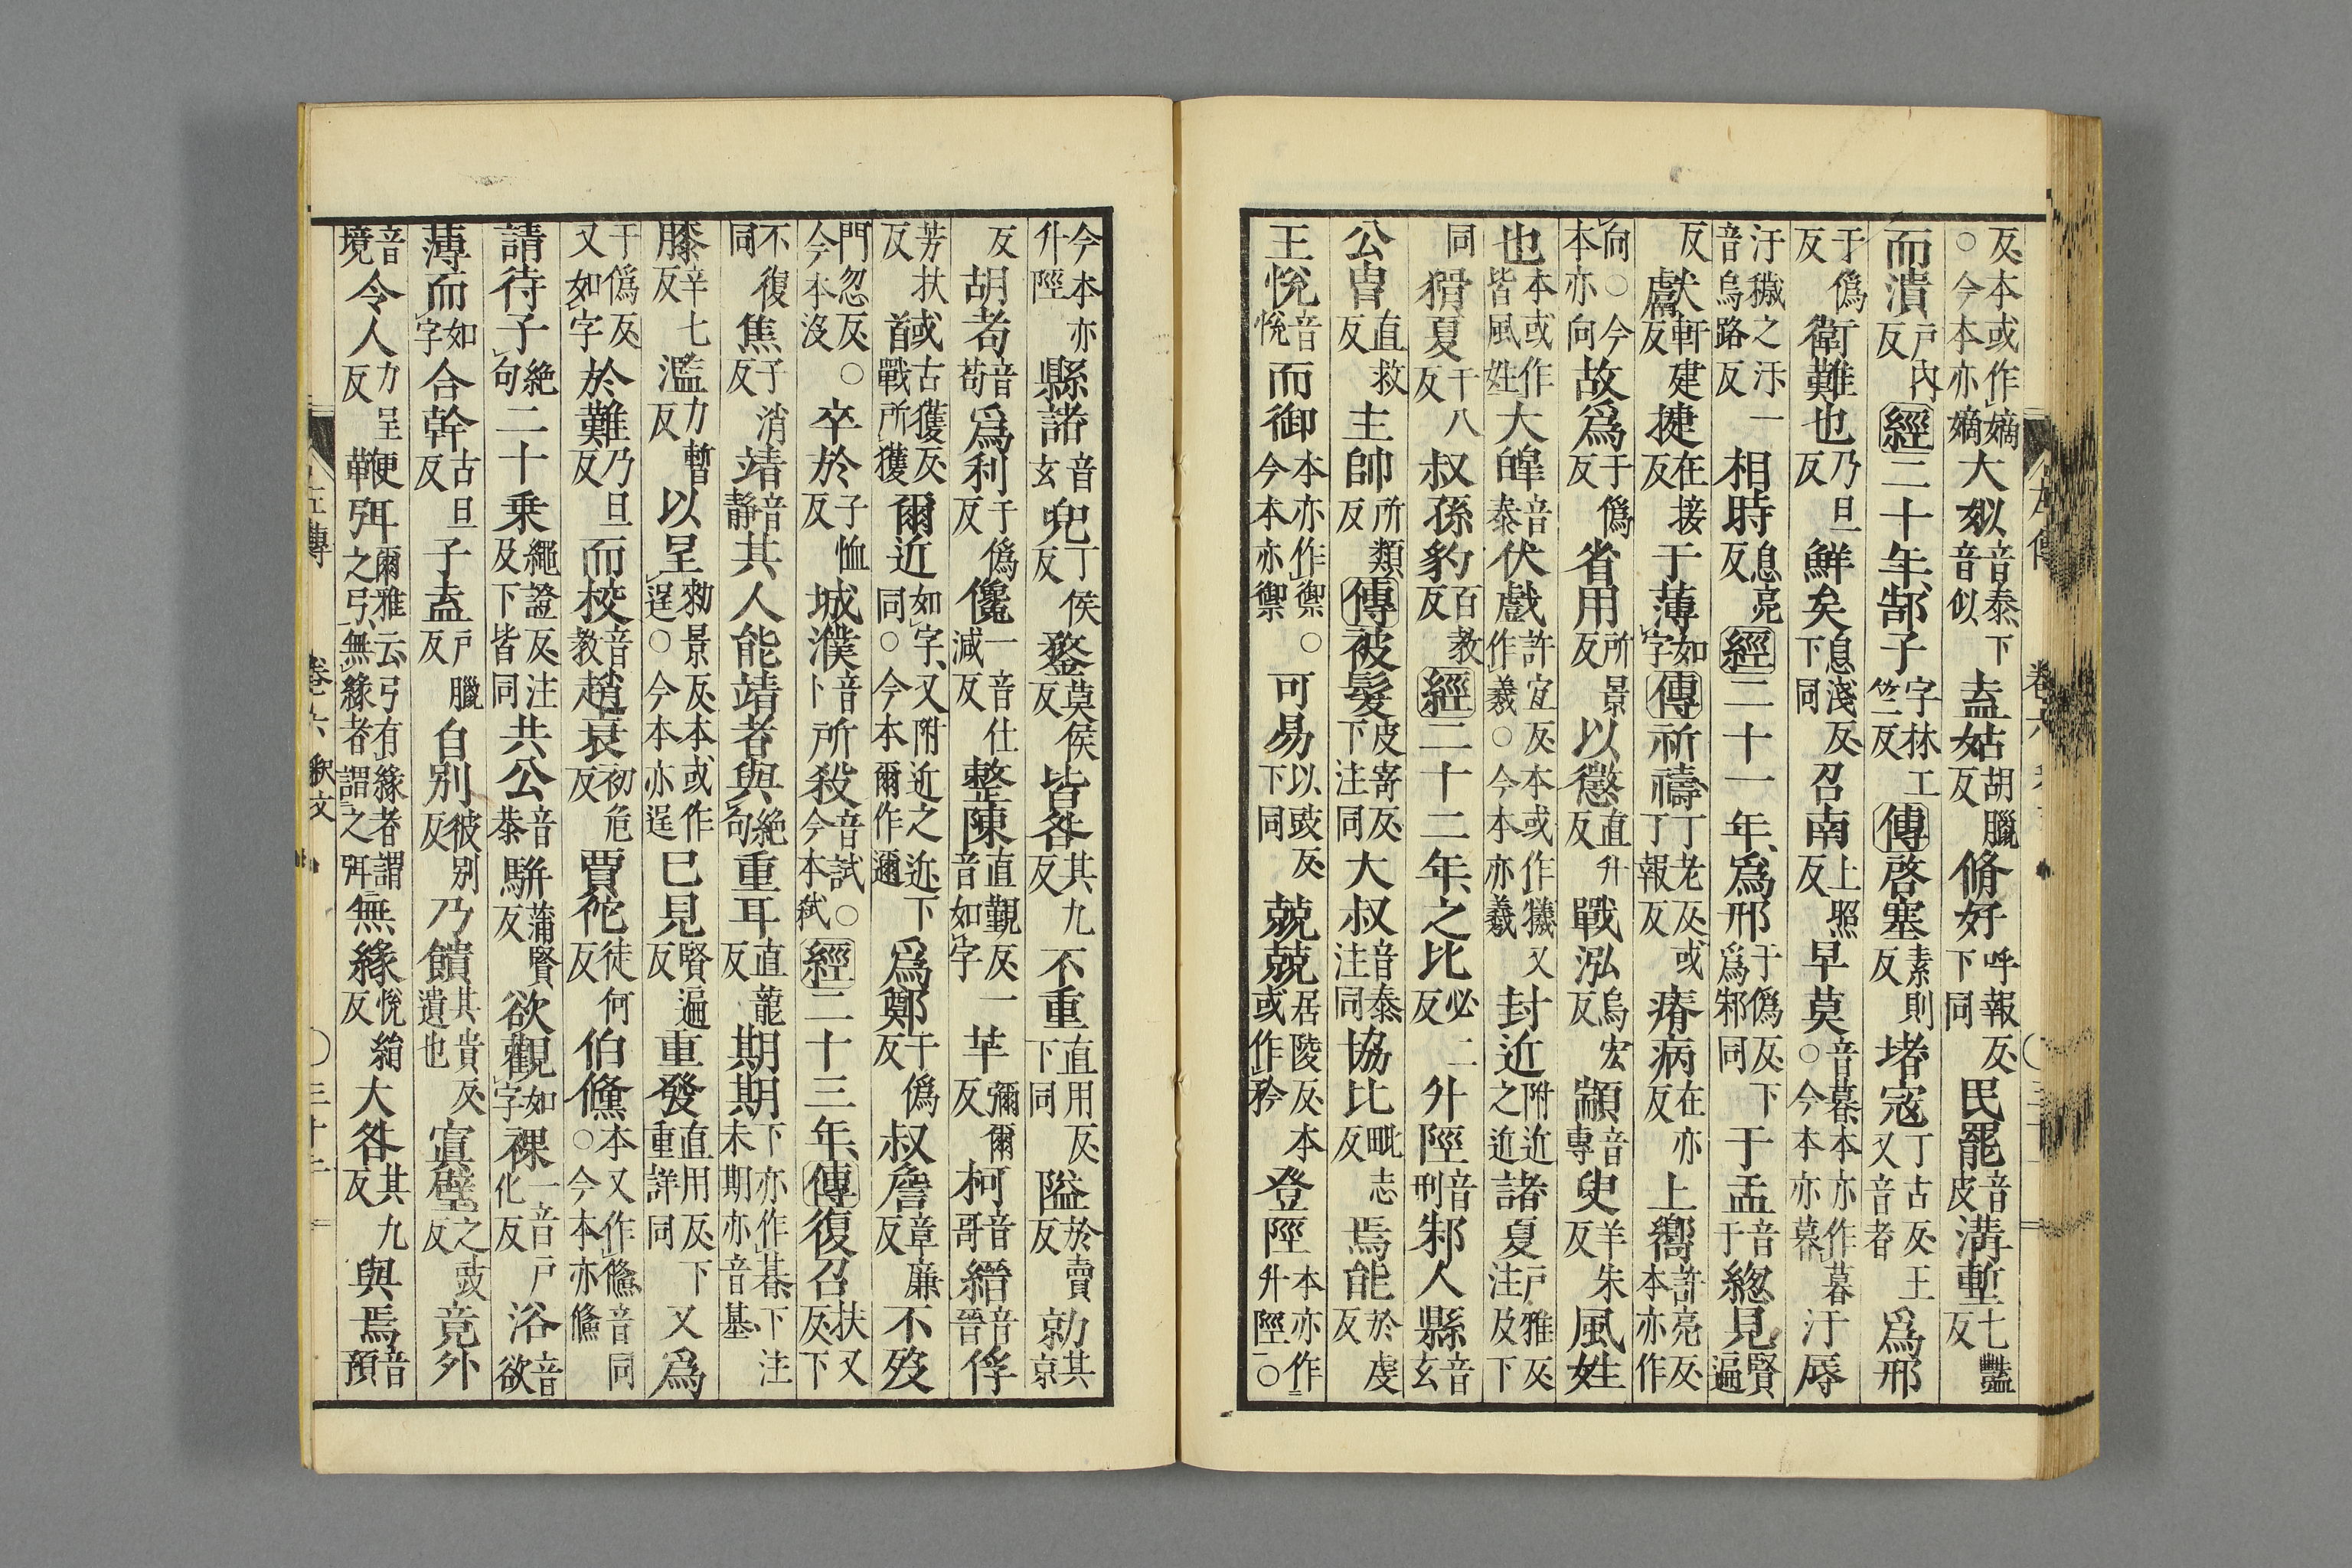 反本或作嫡○今本亦嫡大姒音泰下音似盍姑胡臘反脩好呼報反下同民罷音皮溝塹七豔反
而潰戶內反經二十年郜子字林工竺反傳啓塞素則反堵寇丁古反又音者王爲邢
于僞反衛難也乃旦反鮮矣息淺反下同召南上照反早莫音暮本亦作暮○今本亦暮汙辱
汙穢之汙一音烏路反相時息亮反經二十一年爲邢于僞反下爲邾同于盂音于緫見賢遍
反獻軒建反捷在接反于薄如字傳祈禱丁老反或丁報反瘠病在亦反上嚮許亮反本亦作
向○今本亦向故爲于僞反省用所景反以懲直升反戰泓烏宏反顓音專臾羊朱反風姓
也本或作皆風姓大皥音泰伏戲許宜反本或作犧又作羲○今本亦羲封近附近之近諸夏戶雅反注及下
同猾夏于八反叔孫豹百教反經二十二年之比必二反外陘音刑邾人縣音玄
公冑直救反主帥所類反傳被髮皮寄反下注同大叔音泰注同協比毗志反焉能於虔反
王悅音悅而御本亦作禦○今本亦禦可易以豉反下同兢兢居陵反本或作矜登陘本亦作升陘○
今本亦升陘縣諸音玄兜丁侯反鍪莫侯反皆咎其九反不重直用反下同隘於賣反勍其京
反胡耇音苟爲利于僞反儳一音仕減反整陳直覲反一音如字芈彌爾反柯音哥縉音晉俘
芳扶反首或古獲反戰所獲爾近如字又附近之近下同○今本爾作邇爲鄭于僞反叔詹章廉反不歿
門忽反○今本沒卒於子恤反城濮音卜所殺音試○今本弒經二十三年傳復召扶又反下
不復同焦子消反靖音靜其人能靖者與絕句重耳直龍反期期下亦作朞下注未期亦音基
膝辛七反濫力暫反以呈勑景反本或作逞○今本亦逞已見賢遍反重發直用反下重詳同又爲
于僞反又如字於難乃旦反而校音教趙衰初危反賈佗徒何反伯儵本又作鯈音同○今本亦鯈
請待子絕句二十乘繩證反注及下皆同共公音恭駢蒲賢反欲觀如字裸一音戶化反浴音欲
薄而如字合幹古旦反子盍戶臘反自別彼別反乃饋其貴反遺也寘璧之豉反竟外
音境令人力呈反鞭弭爾雅云弓有緣者謂之弓無緣者謂之弭無緣悅絹反大咎其九反與焉音預